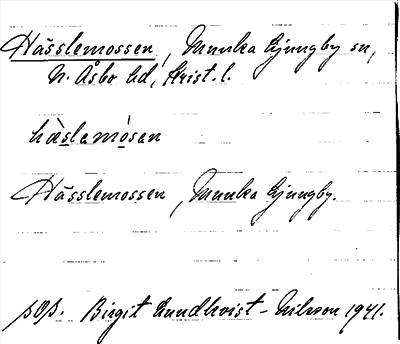 Hässlemossen, Munka Ljungby sn,
N. Åsbo hd, Krist. l.
hàslemósen
Hässlemossen, Munka Ljungby.
pOp. Birgit Lundkvist-Nilsson 1941.